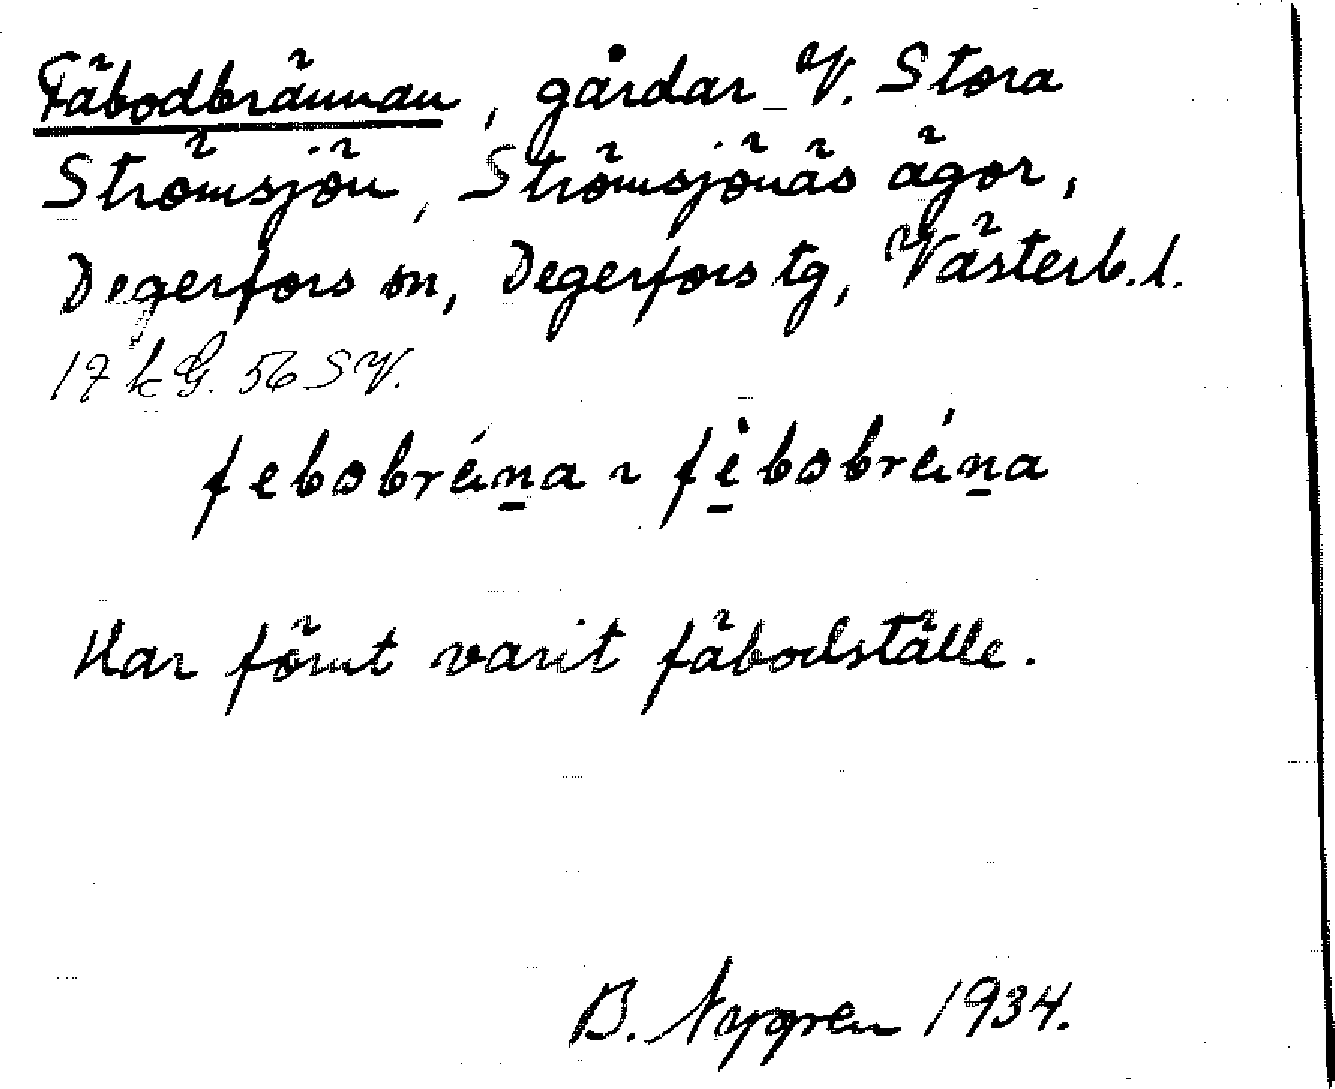 Fäbodbrännan, gårdar V. Stora
Strömsjön, Strömsjönäs ägor,
Degerfors sn, Degerfors tg, Västerb. l.
17 k G. 56 SV.
febobréṉa ~ fè̱bobréṉa
Har förut varit fäbodställe.
B. Nygren 1934.